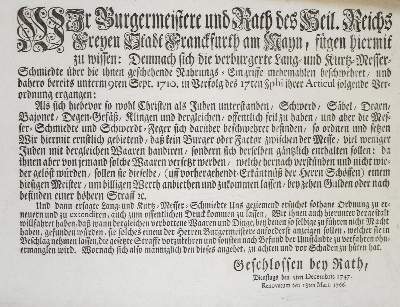 WJr Burgermeistere und Rath des Heil. Reichs
Freyen Stadt Franckfurth am Mayn, fügen hiermit
zu wissen: Demnach sich die verburgerte Lang- und Kurtz-Messer-
Schmiedte über die ihnen geschehende Nahrungs-Eingriffe mehrmahlen beschwehret, und
dahero bereits unterm 9ten Sept. 1710. in Verfolg des 17ten ihrer Articul folgende Ver-
ordnung ergangen:
Als sich hiebevor so wohl Christen als Juden unterstanden, Schwerd, Säbel, Degen,
Bajonet, Degen-Gefäß, Klingen und dergleichen, offentlich feil zu haben, und aber die Mes-
ser-Schmiedte und Schwerdt-Feger sich darüber beschwehret befinden, so ordnen und setzen
Wir hiermit ernstlich gebietend, daß kein Burger oder Factor zwischen der Messe, viel weniger
Juden mit dergleichen Waaren handieren, sondern sich derselben gäntzlich enthalten sollen: da
ihnen aber von jemand solche Waaren versetzt werden, welche hernach verstünden und nicht wie-
der gelöst würden, sollen sie dieselbe, (uff vorhergehendt-Erkäntnüß der Herrn Schöffen) einem
hiesigen Meister, um billigen Werth anbiethen und zukommen lassen, bey zehen Gulden oder nach
befinden einer höhern Straff ꝛc.
Und dann ersagte Lang-und Kurtz-Messer-Schmiedte Uns geziemend ersuchet sothane Ordnung zu er-
neuern und zu extendiren, auch zum offentlichen Druck kommen zu lassen, Wir ihnen auch hierunter derogestalt
willfahret haben, daß wann dergleichen verbottene Waaren und Dinge, bey denen so selbige zu führen nicht Macht
haben, gefunden würden, sie solches einem der Herren Burgermeistere anforderist anzeigen sollen, welcher sie in
Beschlag nehmen lassen, die gesetzte Straffe vorzukehren und sonsten nach Befund der Umstände zu verfahren ohn-
ermanglen wird. Wornach sich also männiglich den dieses angehet, zu achten und vor Schaden zu hüten hat.
Geschlossen bey Rath,
Dienstags den 5ten Decembris 1747.
Renovatum den 18ten Martii 1766.